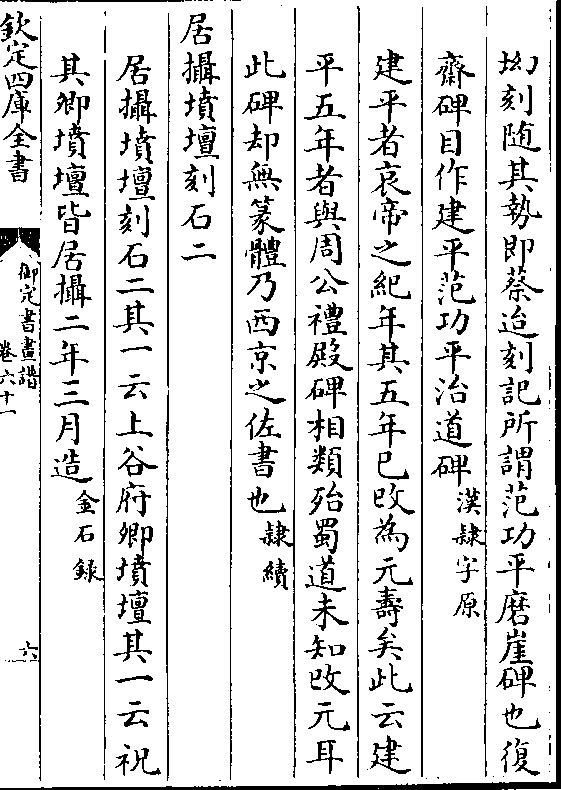 㘭刻随其執即蔡迨刻記所謂范功平磨崖碑也復
齋碑目作建平范功平治道碑漢隸字原
建平者哀帝之紀年其五年已改為元壽矣此云建
平五年者與周公禮殿碑相類殆蜀道未知改元耳
此碑却無篆體乃西京之佐書也隸續
居攝墳壇刻石二
居攝墳壇刻石二其一云上谷府卿墳壇其一云祝
其卿墳壇皆居攝二年三月造金石錄
欽定四庫全書
御定書畫譜
卷六十一
六